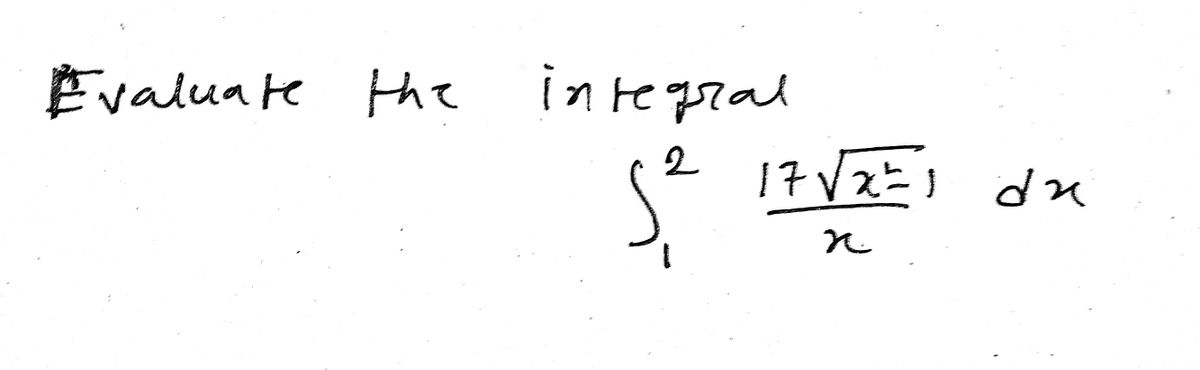 Evaluate the integral
∫₁² 17√(x²-1) / x dx